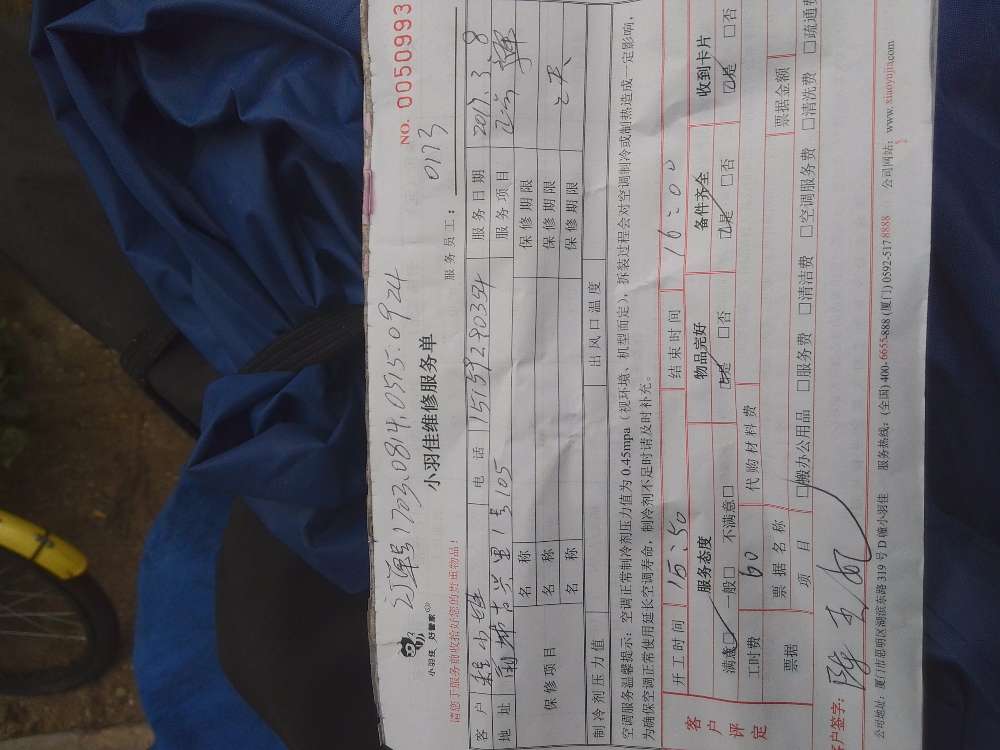 NO. 0050993
1703.0814.0515.0924
小羽佳维修服务单
小羽佳 好管家
服务员工： 0173
请您于服务前收拾好您的贵重物品！
客户 电话 15159280354 服务日期 2017.3.8
地址 1号105 服务项目
保修项目 名称 保修期限
名称 保修期限
名称 保修期限
制冷剂压力值 出风口温度
空调服务温馨提示：空调正常制冷剂压力值为0.45mpa（视环境、机型而定），拆装过程会对空调制冷或制热造成一定影响，
为确保空调正常使用延长空调寿命，制冷剂不足时请及时补充。
客户评定 开工时间 15:40 结束时间 16:00
服务态度 物品完好 备件齐全 收到卡片
满意□ 一般□ 不满意□ □是 □否 □是 □否 □是 □否
工时费 60 代购材料费
票据 票据名称 票据金额
项目 □搬办公用品 □服务费 □清洁费 □空调服务费 □清洗费 □疏通费
客户签字：
公司地址：厦门市思明区湖滨东路319号D幢小羽佳 服务热线：(全国)400-6655-888 (厦门) 0592-5178888 公司网站：www.xiaoyujia.com